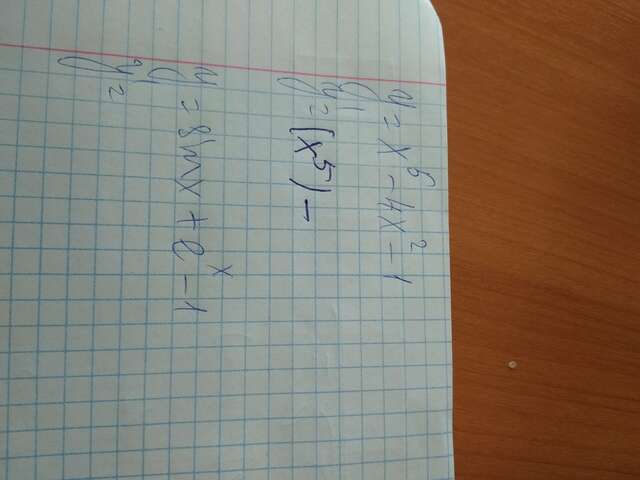 y = x⁵ - 4x² - 1
y' = (x⁵) -
y = 8lnx + eˣ - 1
y' =